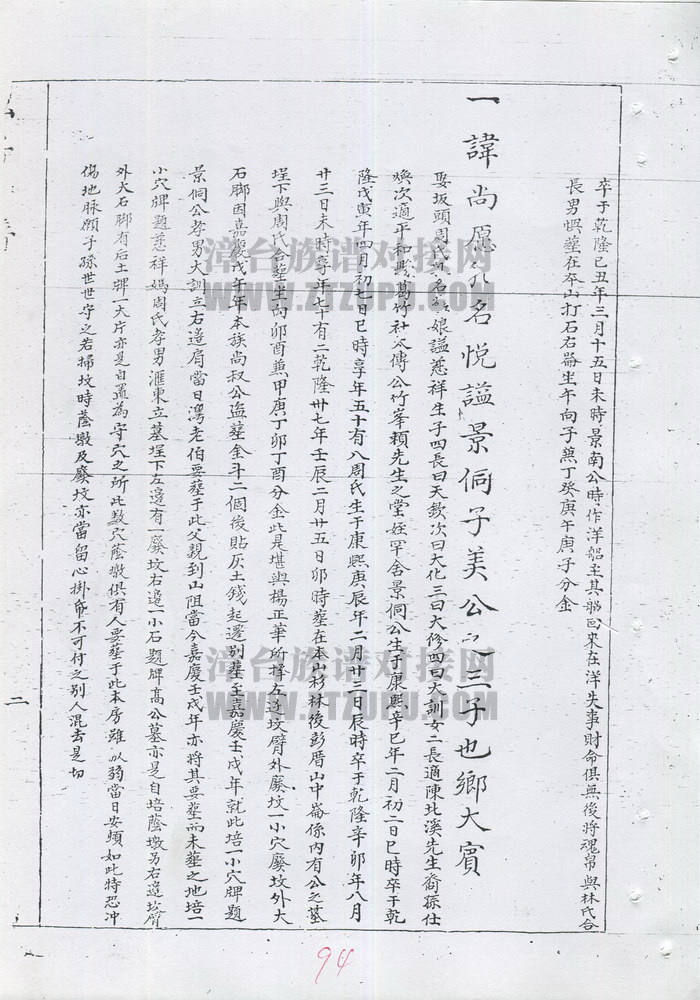 卒于乾隆己丑年三月十五日未時景南公時作洋船主其船回來在洋失事財命俱無後將魂帛與林氏合
長男懊塟在夲山打石右崙坐午向子兼丁癸庚午庚子分金
一諱尚 名悅謚景侗子美公之三子也鄉大賓
娶坂頭周氏 名 娘謚慈祥生子四長曰天敘次曰大化三曰大修四曰大訓女二長適陳北溪先生裔孫仕
煥次適平和縣葛竹社 傳公竹峯賴先生之堂姪罕舍景侗公生于康熙辛巳年二月初二日巳時卒于乾
隆戊寅年四月初七日巳時享年五十有八周氏生于康熙庚辰年二月廿三日辰時卒于乾隆辛卯年八月
廿三日未時享年七十有二乾隆卅七年壬辰二月廿五日卯時塟在本山杉林後彭厝山中崙係內有公之墓
埕下與周氏合塟坐向卯酉兼甲庚丁卯丁酉分金此是堪輿楊正華所擇左邊坟臂外廢坟一小穴廢坟外大
石脚因嘉慶戊午年本族尚叔公盜塟金斗二個後貼灰土錢起遷別塟至嘉慶壬戌年就此培一小穴牌題
景侗公孝男大訓立右邊肩當日灣老伯要塟于此父親到山阻當今嘉慶壬戌年亦將其要塟而未塟之地培一
小穴牌題慈祥媽周氏孝男滙東立墓埕下左邊有一廢坟右邊一小石題牌高公墓亦是自培蔭墩另右邊坟臂
外大石脚有后土牌一大片亦是自置為守穴之所此数穴蔭墩俱有人要塟于此本房雖 弱當日安頓如此特恐冲
傷地脉願子孫世世守之若掃坟時蔭墩及廢坟亦當留心掛帋不可付之別人混去是切
二
94
漳台族谱对接网
WWW.ZTZUPU.COM
漳台族谱对接网
WWW.ZTZUPU.COM